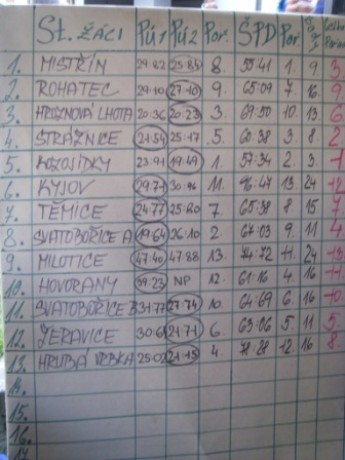 ST. ŽÁCI PÚ1 PÚ2 POŘ. ŠPD POŘ.
1. MISTŘÍN 29:82 25:85 8. 55:41 1. 9. 3.
2. ROHATEC 29:10 27:10 9. 65:09 7. 16 9
3. HROZNOVÁ LHOTA 20:36 20:23 3. 69:50 10. 13 6
4. STRÁŽNICE 21:54 25:17 5. 60:38 3. 8 2
5. KOZOJÍDKY 23:91 19:49 1. 57:34 2. 3.
6. KYJOV 29:71 30:96 11. 96:47 13. 24
7. TĚMICE 24:77 25:20 7. 65:38 8 15 7
8. SVATOBOŘICE A 19:64 36:10 2 67:03 9. 11 4
9. MILOTICE 47:40 47:88 13. 74:72 11. 24
10. HOVORANY 39:23 NP 12. 61:16 4 16
11. SVATOBOŘICE B 31:77 27:74 10. 64:69 6. 16
12. ŽERAVICE 21:71 6. 63:06 5. 11 5.
13. HRUBÁ VRBKA 25:02 21:15 4. 78:28 12. 16 8
14.
15.
16.
17.